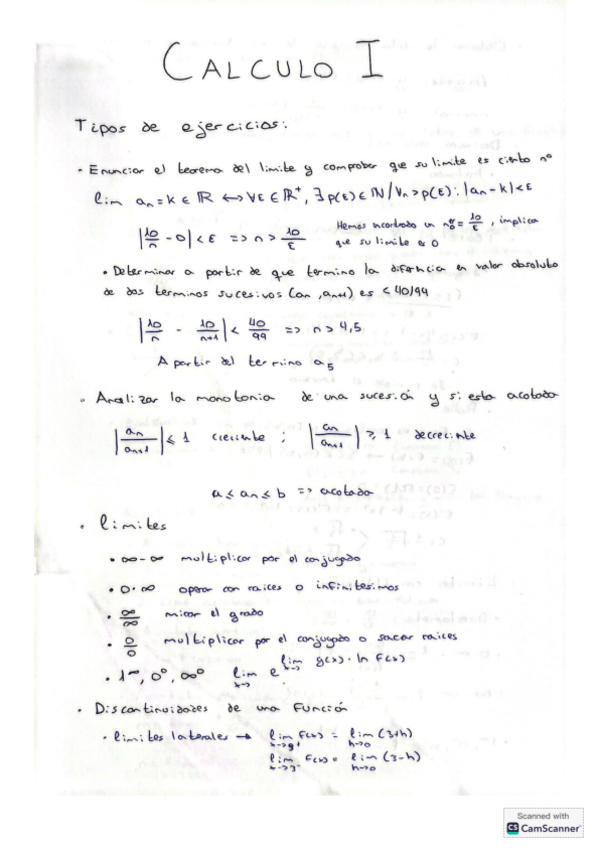 CALCULO I
Tipos de ejercicios:
• Enunciar el teorema del limite y comprobar que su limite es cierto nº
lim an = k ∈ ℝ ↔ ∀ε ∈ ℝ⁺, ∃ p(ε) ∈ ℕ / ∀n > p(ε) : |an - k| < ε
|10/n - 0| < ε => n > 10/ε
Hemos encontrado un nº = 10/ε, implica
que su limite es 0
• Determinar a partir de que termino la diferencia en valor absoluto
de dos terminos sucesivos (an, an+1) es < 40/99
|10/n - 10/n+1| < 40/99 => n > 4,5
A partir del termino a5
• Analizar la monotonia de una sucesión y si esta acotada
|an/an+1| ≤ 1 creciente ; |an/an+1| ≥ 1 decreciente
a ≤ an ≤ b => acotada
• limites
• ∞-∞ multiplicar por el conjugado
• 0·∞ operar con raices o infinitesimos
• ∞/∞ mirar el grado
• 0/0 multiplicar por el conjugado o sacar raices
• 1^∞, 0⁰, ∞⁰ lim x-> e^lim x-> g(x) · ln F(x)
• Discontinuidades de una función
• limites laterales → lim x->3⁺ F(x) = lim h->0 (3+h)
lim x->3⁻ F(x) = lim h->0 (3-h)
Scanned with
CS CamScanner